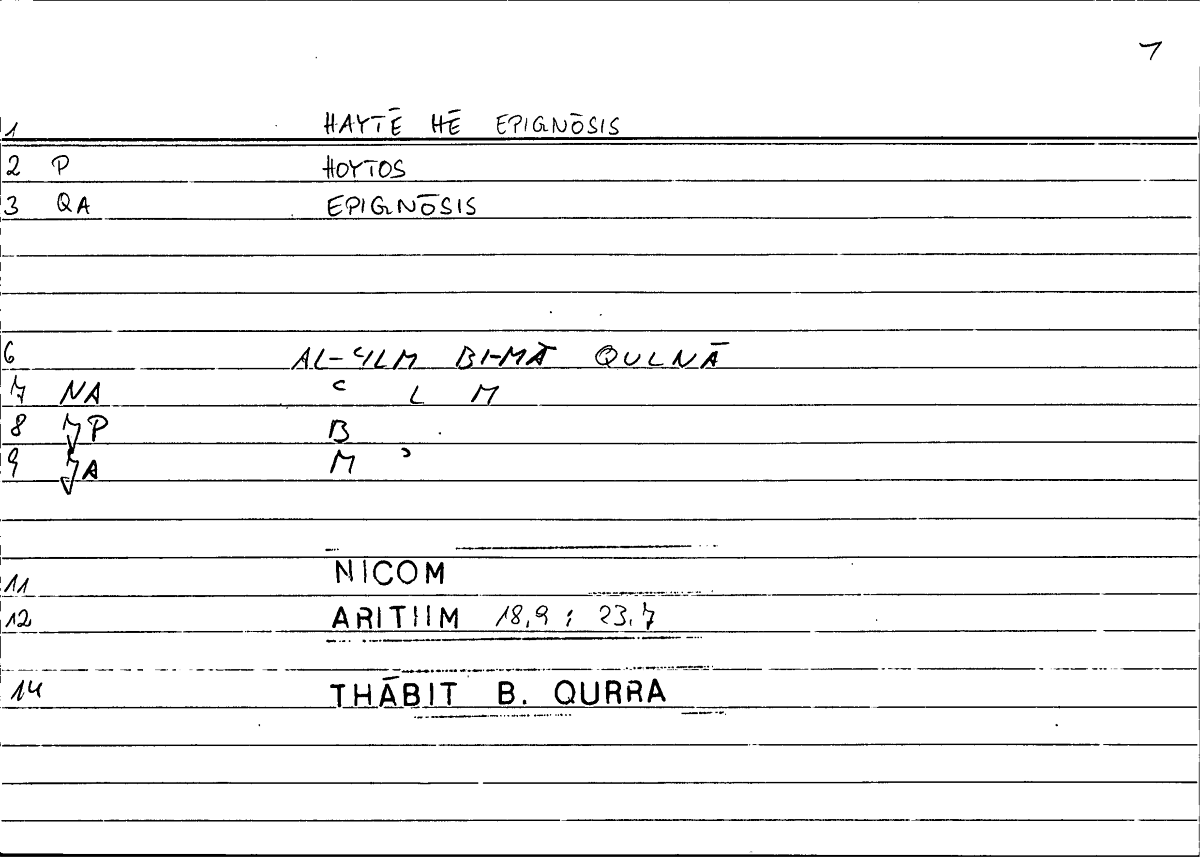 7
1 HAYTĒ HĒ EPIGNŌSIS
2 P HOYTOS
3 QA EPIGNŌSIS
6 AL-ʿILM BI-MĀ QULNĀ
7 NA ʿ L M
8 JP B
9 JA M ʾ
11 NICOM
12 ARITIIM 18,9 ; 23,7
14 THĀBIT B. QURRA